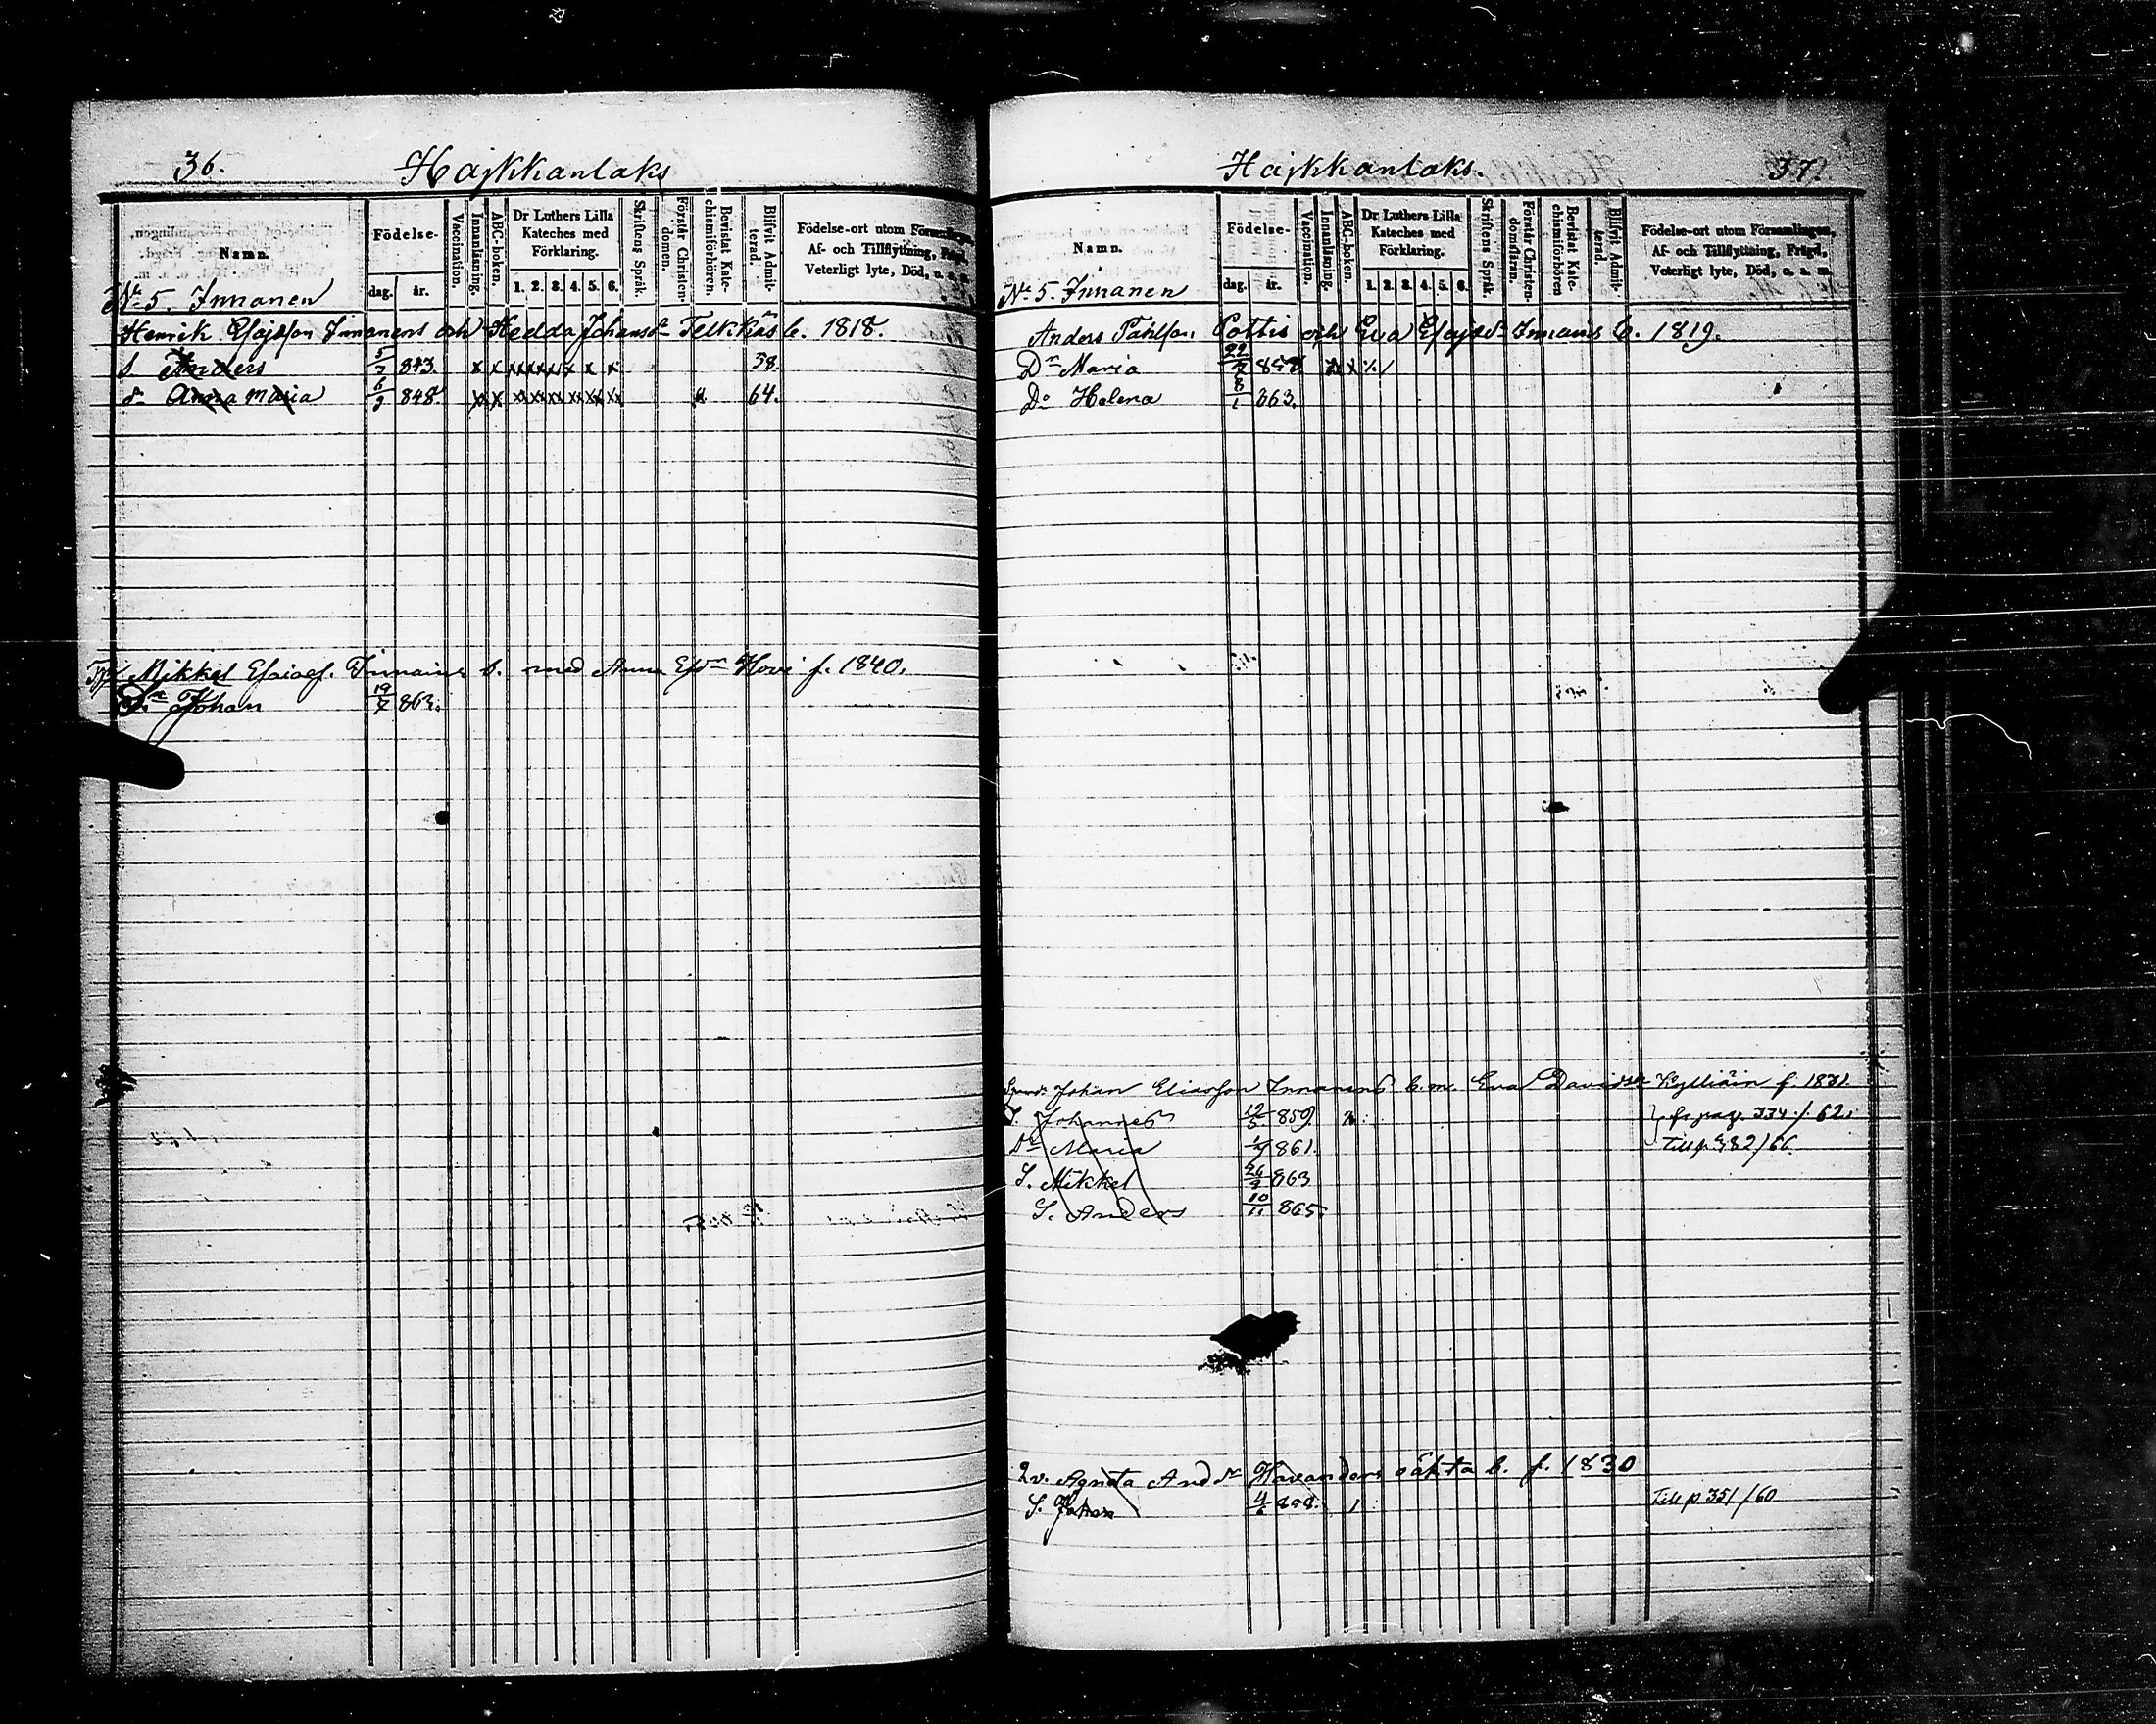 36.
Hajkkanlaks
Namn.
Födelse-
dag.
år.
Vaccination.
Innanläsning.
ABC-boken.
Dr Luthers Lilla
Kateches med
Förklaring.
1. 2. 3. 4. 5. 6.
Skriftens Språk.
Förstår Christen-
domen.
Bevistat Kate-
chismiförhören.
Blifvit Admit-
terad.
Födelse-ort utom Församlingen,
Af- och Tillflyttning, Frägd,
Veterligt lyte, Död, o. s. m.
No 5. Innanen
Henrik Esajsson Innanens och Hedda Johansdr Telkkäs b. 1818.
S Anders 5/7 843. x x xx xx x x x x 58.
dr Anna Maria 6/9 848. xx x xx xx xx xx xx xx x 64.
Mikkel Esaiass. Innanens b. med Anna Esdr Hovi f. 1840.
Sn Johan 19/7 863.
Hajkkanlaks.
37.
Namn.
Födelse-
dag. år.
Vaccination.
Innanläsning.
ABC-boken.
Dr Luthers Lilla
Kateches med
Förklaring.
1. 2. 3. 4. 5. 6.
Skriftens Språk.
Förstår Christen-
domsläran.
Bevistat Kate-
chismiförhören
Blifvit Admit-
terad.
Födelse-ort utom Församlingen,
Af- och Tillflyttning, Frägd,
Veterligt lyte, Död, o. s. m.
No 5. Innanen
Anders Påhlsson Pottis och Eva Esajsdr Innains b. 1819.
Dr Maria 22/7
Do Helena 8/1 863.
Johan Eliasson Innanens b. m. Eva Davidsdr Kylliäin f. 1831.
S. Johannes 12/5 859. fr pag. 334/62.
Dr Maria 861. Till p. 482/66.
S. Mikkel 26/9 863
S. Anders 10/11 865.
Qv. Agneta Anddr Havanders oäkta b. f. 1830
S. Johan 4/6 Till p 351/60